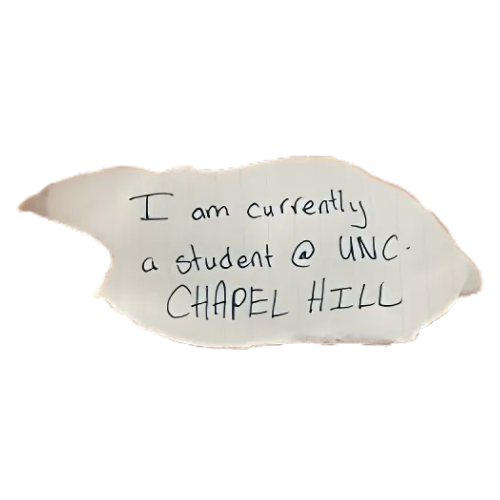 I am currently
a student @ UNC-
CHAPEL HILL